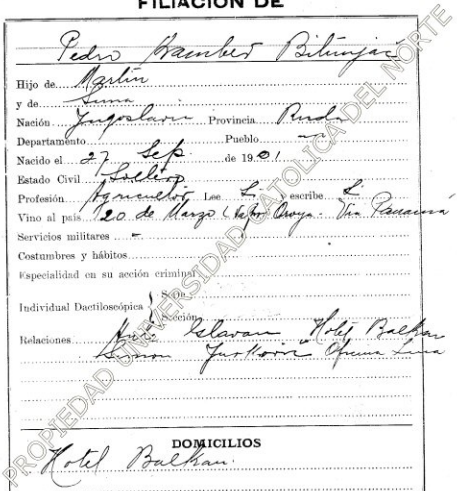 FILIACION DE
Pedro Kamber Bilunjac
Hijo de Martin
y de
Nación Jugoslavia Provincia
Departamento Pueblo
Nacido el 27 Sep. de 1901
Estado Civil Soltero
Profesión Agricultor Lee Si y escribe Si
Vino al país 20 de Marzo (Vapor Oroya. Via Panamá
Servicios militares -
Costumbres y hábitos
Especialidad en su acción criminal
Individual Dactiloscópica { Serie
Sección
Relaciones Hotel Balkan
Simon Oficina
DOMICILIOS
Hotel Balkan.
PROPIEDAD UNIVERSIDAD CATOLICA DEL NORTE